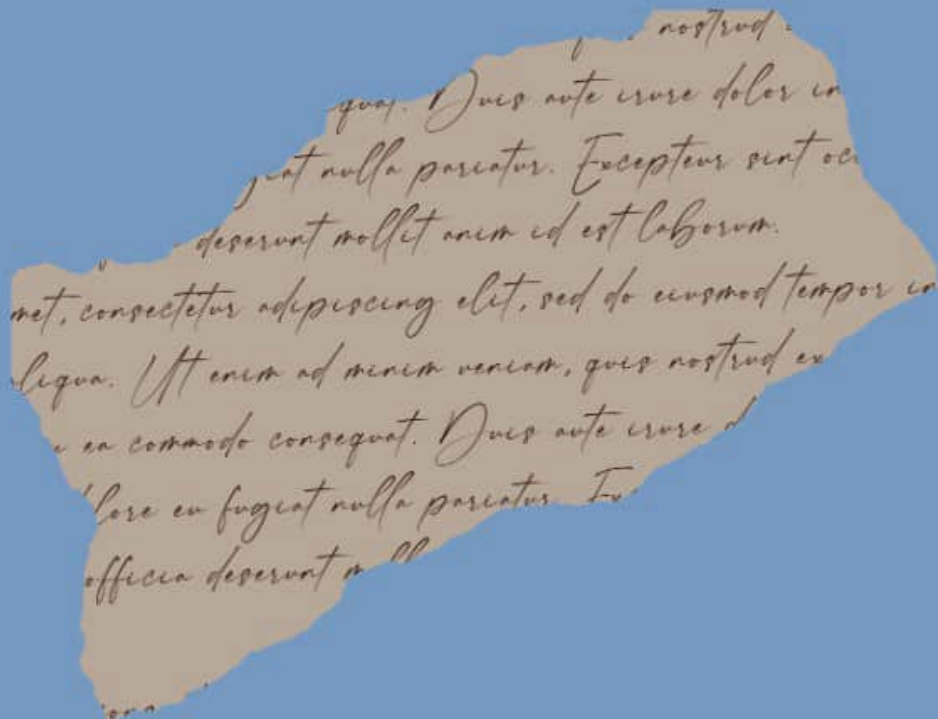 nostrud
quat. Duis aute irure dolor in
giat nulla pariatur. Excepteur sint occ
deserunt mollit anim id est laborum.
met, consectetur adipiscing elit, sed do eiusmod tempor in
liqua. Ut enim ad minim veniam, quis nostrud ex
ea commodo consequat. Duis aute irure d
lore eu fugiat nulla pariatur. Ex
officia deserunt moll